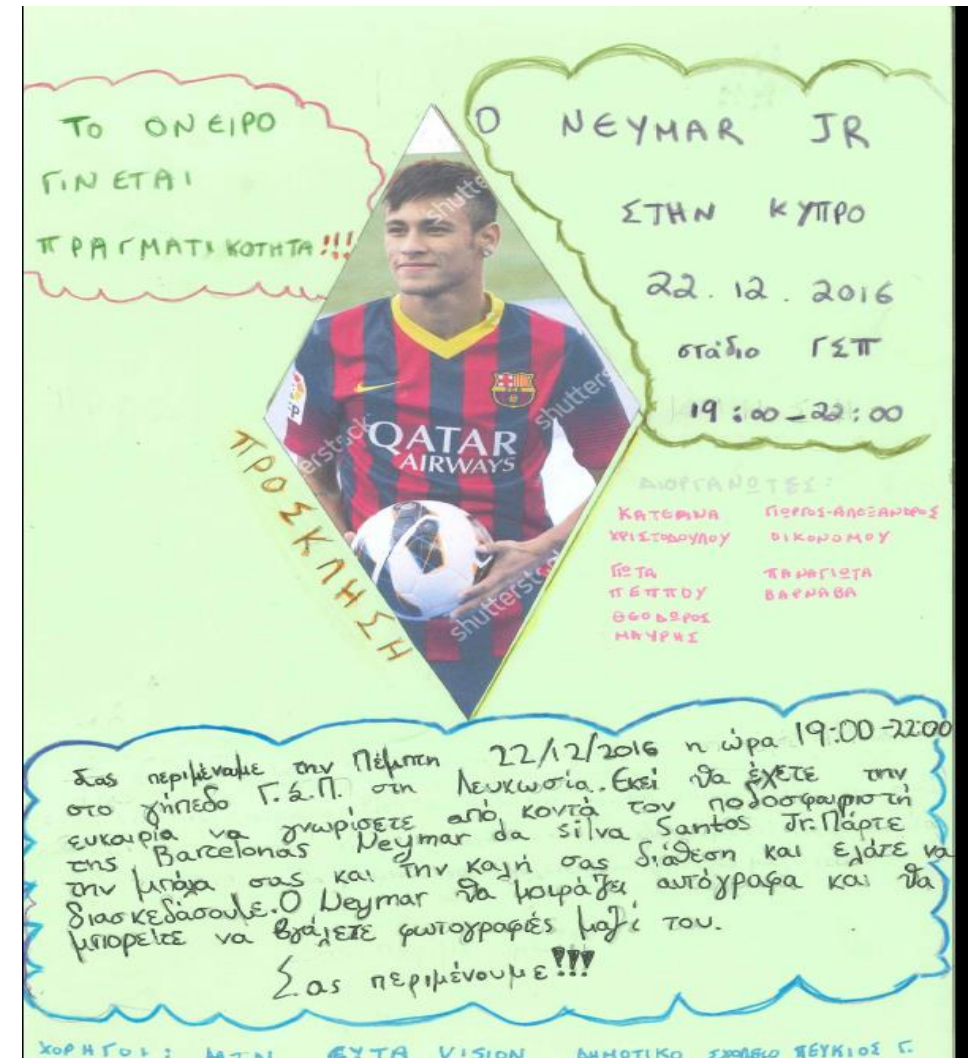 ΤΟ ΟΝΕΙΡΟ
ΓΙΝΕΤΑΙ
ΠΡΑΓΜΑΤΙΚΟΤΗΤΑ!!!
Ο NEYMAR JR
ΣΤΗΝ ΚΥΠΡΟ
22.12.2016
στάδιο ΓΣΠ
19:00-22:00
shutterstock
QATAR
AIRWAYS
ΠΡΟΣΚΛΗΣΗ
ΔΙΟΡΓΑΝΩΤΕΣ:
ΚΑΤΕΡΙΝΑ ΓΙΩΡΓΟΣ-ΑΛΕΞΑΝΔΡΟΣ
ΧΡΙΣΤΟΔΟΥΛΟΥ ΟΙΚΟΝΟΜΟΥ
ΓΙΩΤΑ ΠΑΝΑΓΙΩΤΑ
ΠΕΠΠΟΥ ΒΑΡΝΑΒΑ
ΘΕΟΔΩΡΟΣ
ΜΑΥΡΗΣ
Σας περιμέναμε την Πέμπτη 22/12/2016 η ώρα 19:00-22:00
στο γήπεδο Γ.Σ.Π. στη Λευκωσία. Εκεί θα έχετε την
ευκαιρία να γνωρίσετε από κοντά τον ποδοσφαιριστή
της Barcelonas Neymar da Silva Santos Jr. Πάρτε
την μπάλα σας και την καλή σας διάθεση και ελάτε να
διασκεδάσουμε. Ο Neymar θα μοιράζει αυτόγραφα και θα
μπορείτε να βγάλετε φωτογραφιές μαζί του.
Σας περιμένουμε!!!
ΧΟΡΗΓΟΙ: MTN CYTA VISION ΔΗΜΟΤΙΚΟ ΣΧΟΛΕΙΟ ΠΕΥΚΙΟΣ Γ.